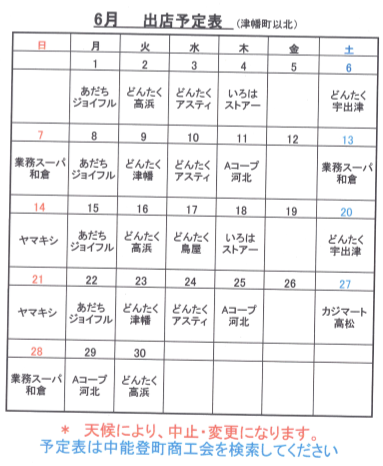 6月 出店予定表 (津幡町以北)
日 月 火 水 木 金 土
1 2 3 4 5 6
あだち どんたく どんたく いろは どんたく
ジョイフル 高浜 アスティ ストアー 宇出津
7 8 9 10 11 12 13
業務スーパ あだち どんたく どんたく Aコープ 業務スーパ
和倉 ジョイフル 津幡 アスティ 河北 和倉
14 15 16 17 18 19 20
ヤマキシ あだち どんたく どんたく いろは どんたく
ジョイフル 高浜 鳥屋 ストアー 宇出津
21 22 23 24 25 26 27
ヤマキシ あだち どんたく どんたく Aコープ カジマート
ジョイフル 津幡 アスティ 河北 高松
28 29 30
業務スーパ Aコープ どんたく
和倉 河北 高浜
* 天候により、中止・変更になります。
予定表は中能登町商工会を検索してください